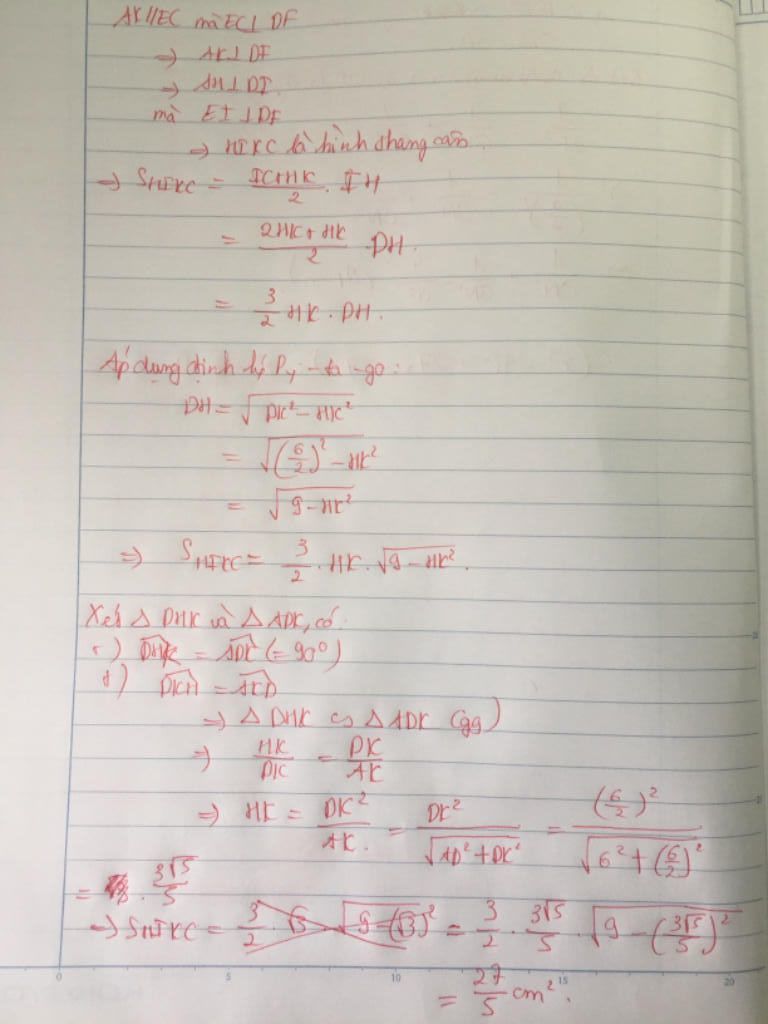 AK//EC mà EC⊥DF
=> AK⊥DF
=> AH⊥DI
mà EI⊥DF
=> HIKC là hình thang cân
=> S_HIKC = (IC+HK)/2 . IH
= (2HK+HK)/2 . DH
= 3/2 HK . DH.
Áp dụng định lý Py-ta-go:
DH = √(DK² - HK²)
= √((6/2)² - HK²)
= √(9 - HK²)
=> S_HIKC = 3/2 . HK . √(9 - HK²).
Xét Δ DHK và Δ ADK, có
+) DHK = ADK (= 90°)
+) DKH = AKD
=> Δ DHK ∽ Δ ADK (gg)
=> HK/DK = DK/AK
=> HK = DK²/AK. = DK²/√(AD²+DK²) = (6/2)²/√(6²+(6/2)²)
= . 3√5/5
=> S_HIKC = 3/2 . √3 . √(9-(√3)² = 3/2 . 3√5/5 . √(9 - (3√5/5)²)
= 27/5 cm².
0 5 10 15 20